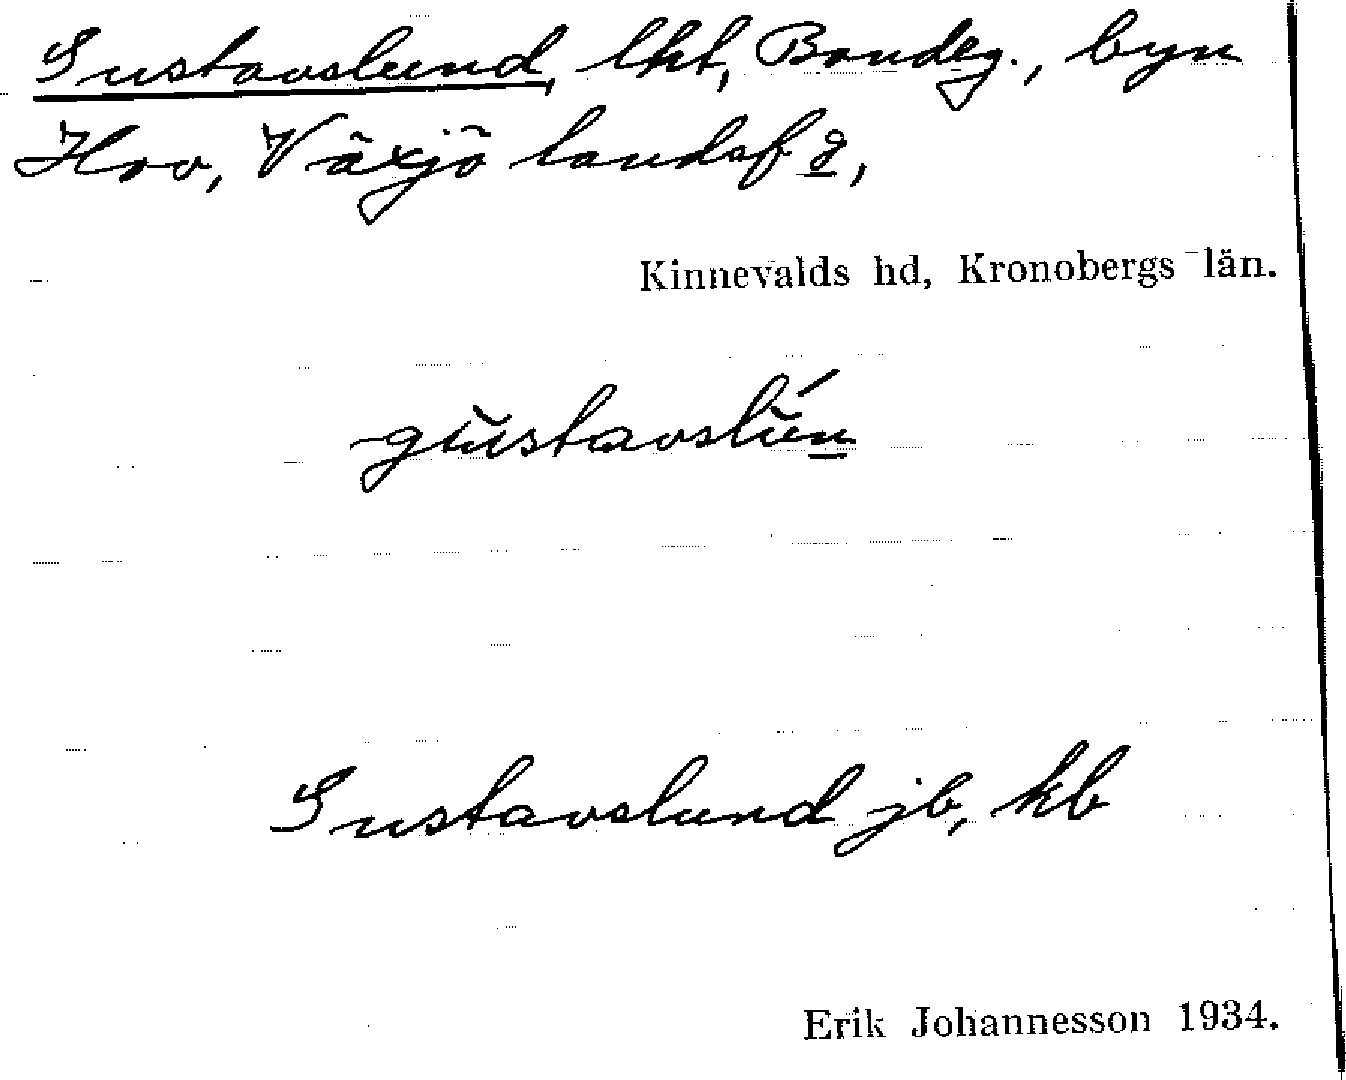 Gustavslund, lht, Bondeg., byn
Hov, Växjö landsf s,
Kinnevalds hd, Kronobergs län.
gŭstavslŭ́n
Gustavslund jb, kb
Erik Johannesson 1934.